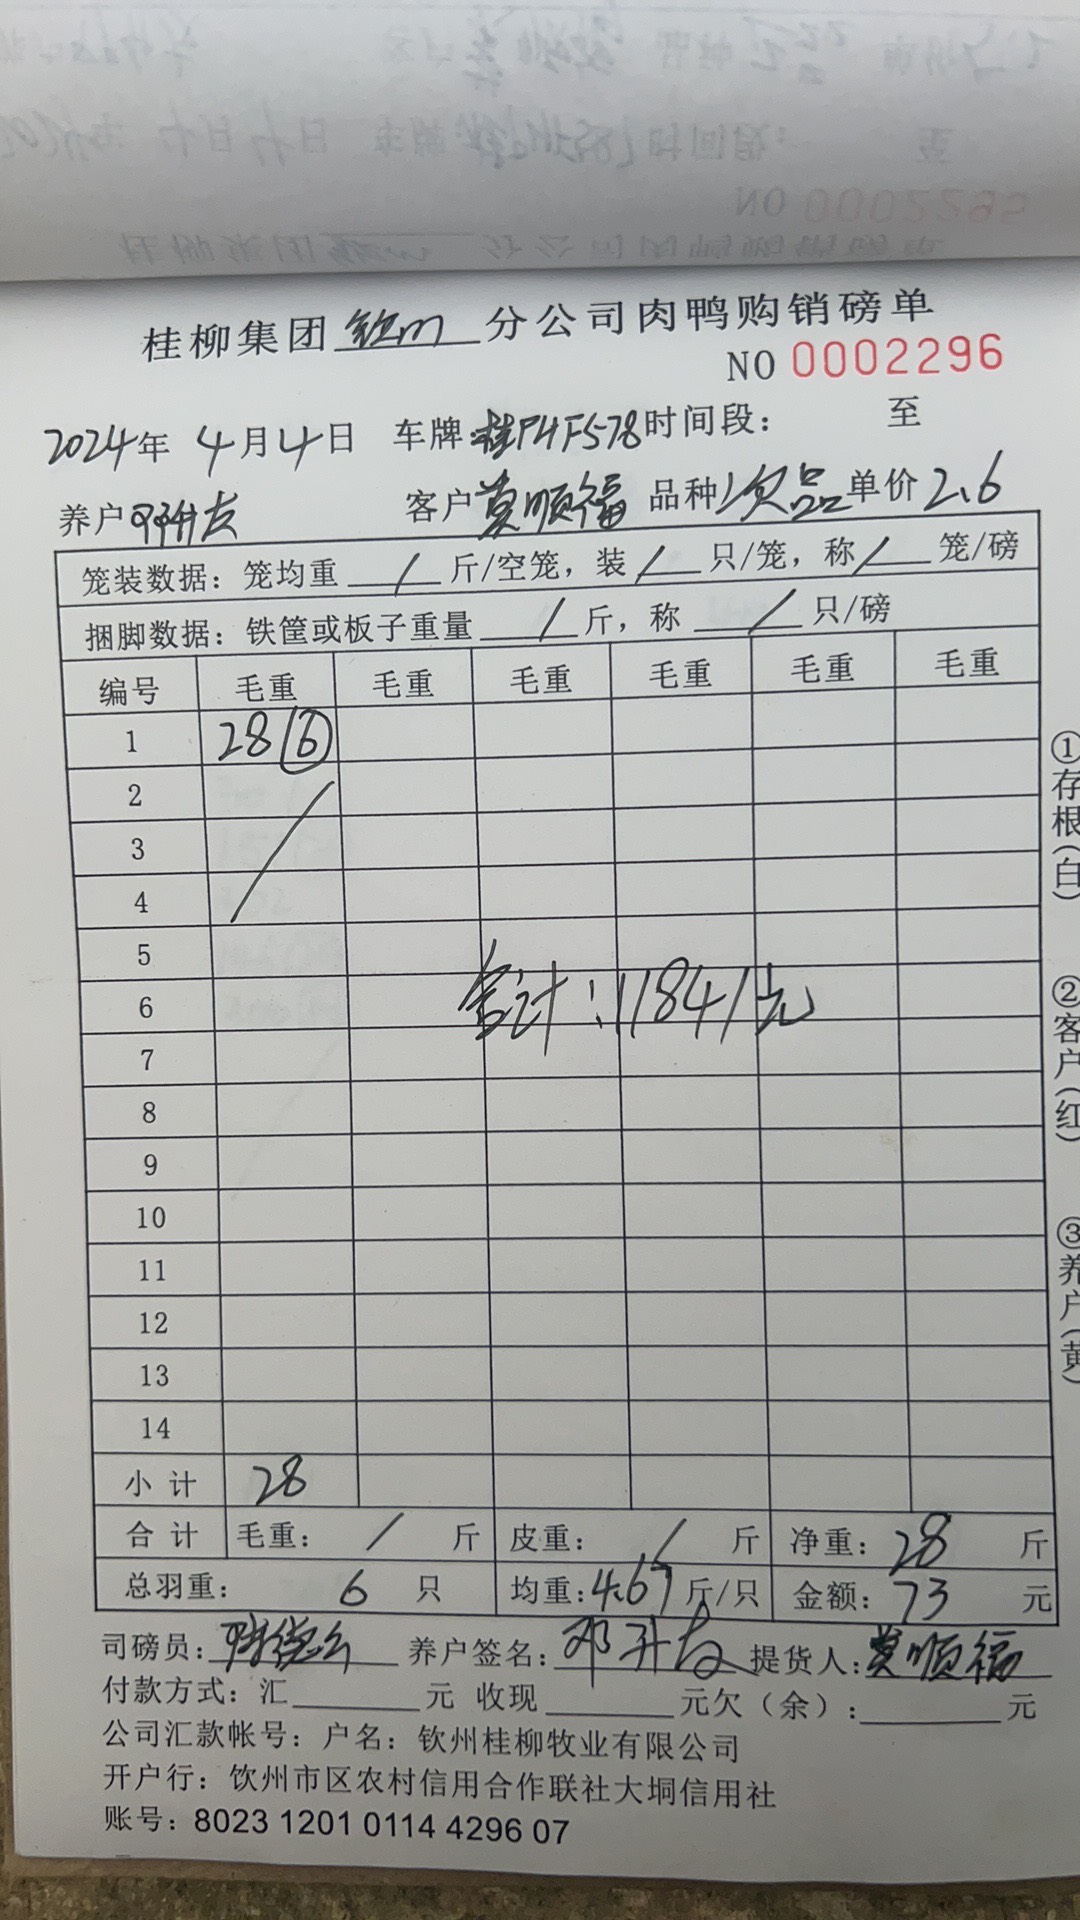 NO 0002295
桂柳集团钦州分公司肉鸭购销磅单
NO 0002296
2024年 4月4日 车牌:桂P4F578 时间段: 至
养户邓升友 客户莫顺福 品种次品 单价2.6
笼装数据: 笼均重 / 斤/空笼, 装 / 只/笼, 称 / 笼/磅
捆脚数据: 铁筐或板子重量 / 斤, 称 / 只/磅
编号 毛重 毛重 毛重 毛重 毛重 毛重
1 28/⑥
2
3
4
5
6
合计:11841元
7
8
9
10
11
12
13
14
小计 28
合计 毛重: / 斤 皮重: / 斤 净重: 28 斤
总羽重: 6 只 均重:4.67斤/只 金额: 73 元
司磅员: 养户签名:邓升友 提货人:莫顺福
付款方式: 汇 元 收现 元欠(余): 元
公司汇款帐号: 户名: 钦州桂柳牧业有限公司
开户行: 钦州市区农村信用合作联社大垌信用社
账号: 8023 1201 0114 4296 07
①存根(白)
②客户(红)
③养户(黄)